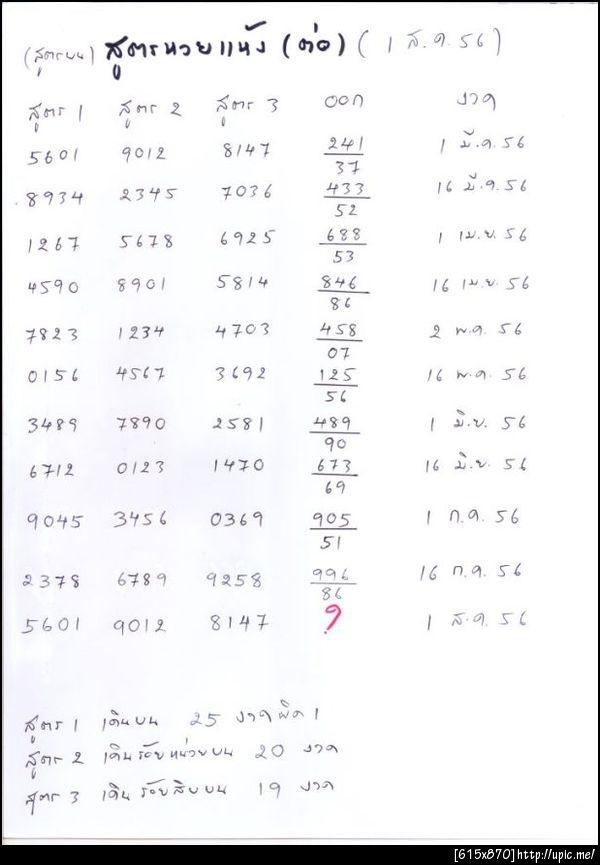 (สูตรบน) สูตรหวยแห้ง (ต่อ) ( 1 ส.ค. 56 )
สูตร 1 สูตร 2 สูตร 3 ออก งวด
5601 9012 8147 241/37 1 มี.ค. 56
8934 2345 7036 433/52 16 มี.ค. 56
1267 5678 6925 688/53 1 เม.ย. 56
4590 8901 5814 846/86 16 เม.ย. 56
7823 1234 4703 458/07 2 พ.ค. 56
0156 4567 3692 125/56 16 พ.ค. 56
3489 7890 2581 489/90 1 มิ.ย. 56
6712 0123 1470 673/69 16 มิ.ย. 56
9045 3456 0369 905/51 1 ก.ค. 56
2378 6789 9258 996/86 16 ก.ค. 56
5601 9012 8147 ? 1 ส.ค. 56
สูตร 1 เดินบน 25 งวด ผิด 1
สูตร 2 เดินร้อยหน่วยบน 20 งวด
สูตร 3 เดินร้อยสิบบน 19 งวด
[615x870]http://upic.me/